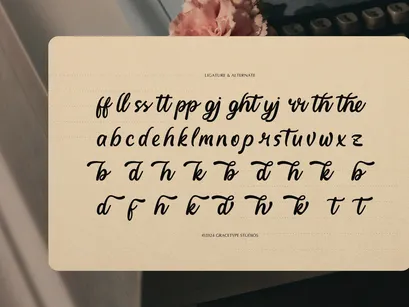 LIGATURE & ALTERNATE
ff ll ss tt pp gj ght yj rr th the
a b c d e h k l m n o p r s t u v w x z
b d h k b d h k b
d f h k d h k t t
©2023 GRACETYPE STUDIOS